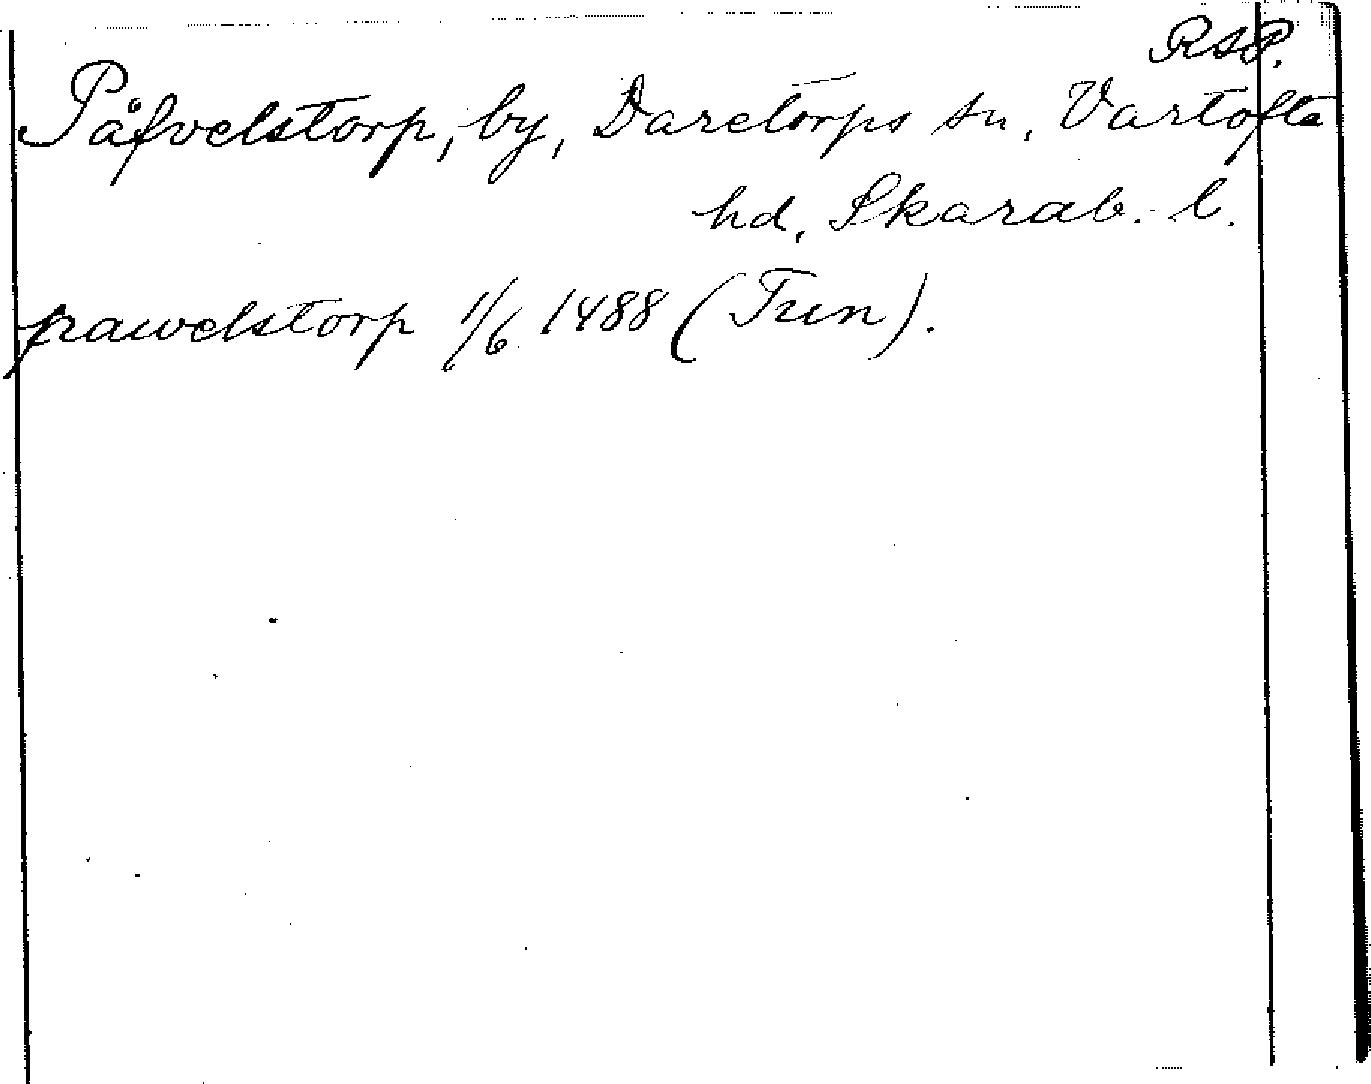 RAP.
Påfvelstorp, by, Daretorps sn, Vartofta
hd, Skarab. l.
pawelstorp 1/6 1488 (Trin).